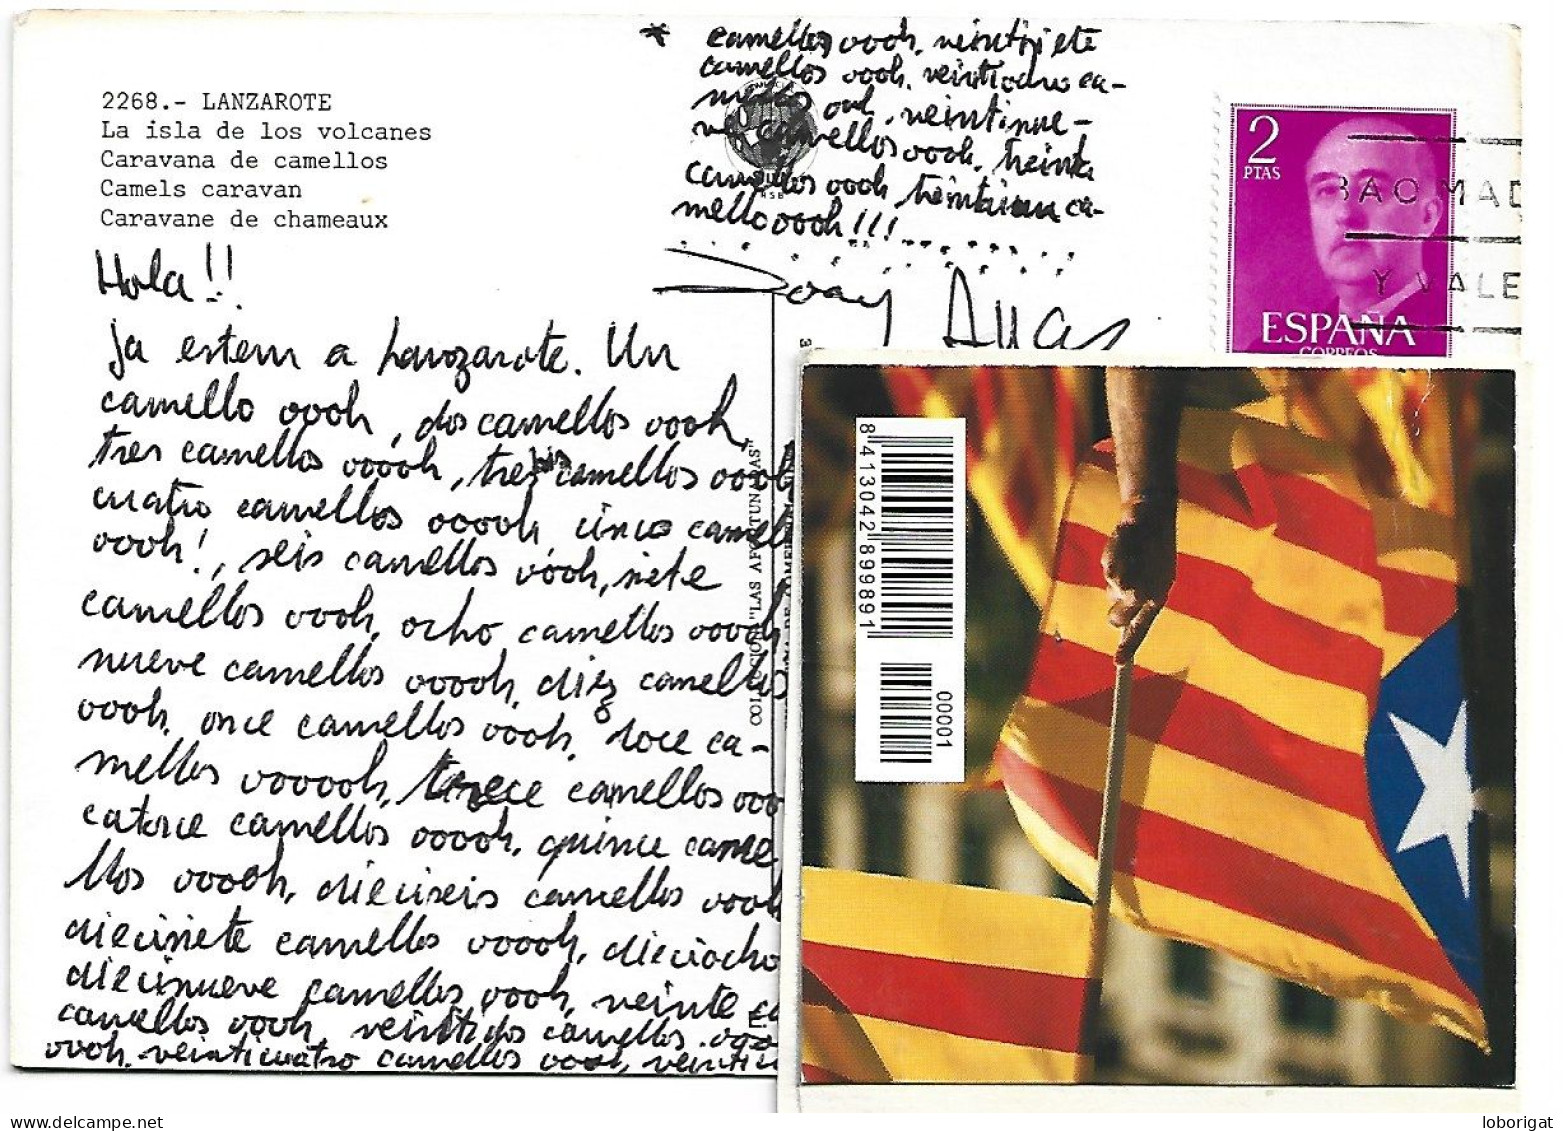 2268.- LANZAROTE
La isla de los volcanes
Caravana de camellos
Camels caravan
Caravane de chameaux
Hola!!
ja estem a Lanzarote. Un
camello oooh, dos camellos oooh,
tres camellos ooooh, tres bis camellos oooh
cuatro camellos ooooh cinco camell
oooh!, seis camellos oooh, siete
camellos oooh, ocho camellos ooooh
nueve camellos ooooh, diez camellos
oooh, once camellos oooh, doce ca-
mellos oooooh, trece camellos ooo
catorce camellos ooooh, quince came
llos ooooh, dieciseis camellos oooh
diecisiete camellos ooooh, dieciocho
diecinueve camellos oooh, veinte ca
camellos oooh, veintidos camellos oooo
oooh, veinticuatro camellos oooh, veintici
* camellos oooh, veintisiete
camellos oooh, veintiocho ca-
mellos ooh, veintinue-
ve camellos oooh, treinta
camellos oooh, treintaiun ca-
mello oooh!!!
COLECCION "LAS AFORTUNADAS"
2
PTAS
ESPAÑA
CORREOS
BAO MAD
Y VALE
8 413042 899891
00001
loborigat